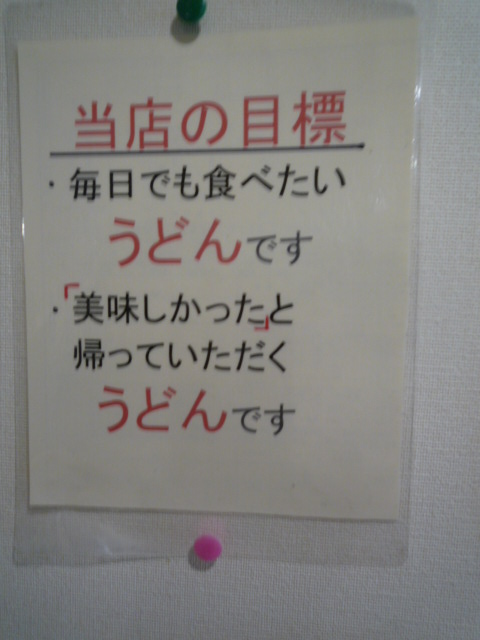 当店の目標
・毎日でも食べたい
うどんです
・「美味しかった」と
帰っていただく
うどんです